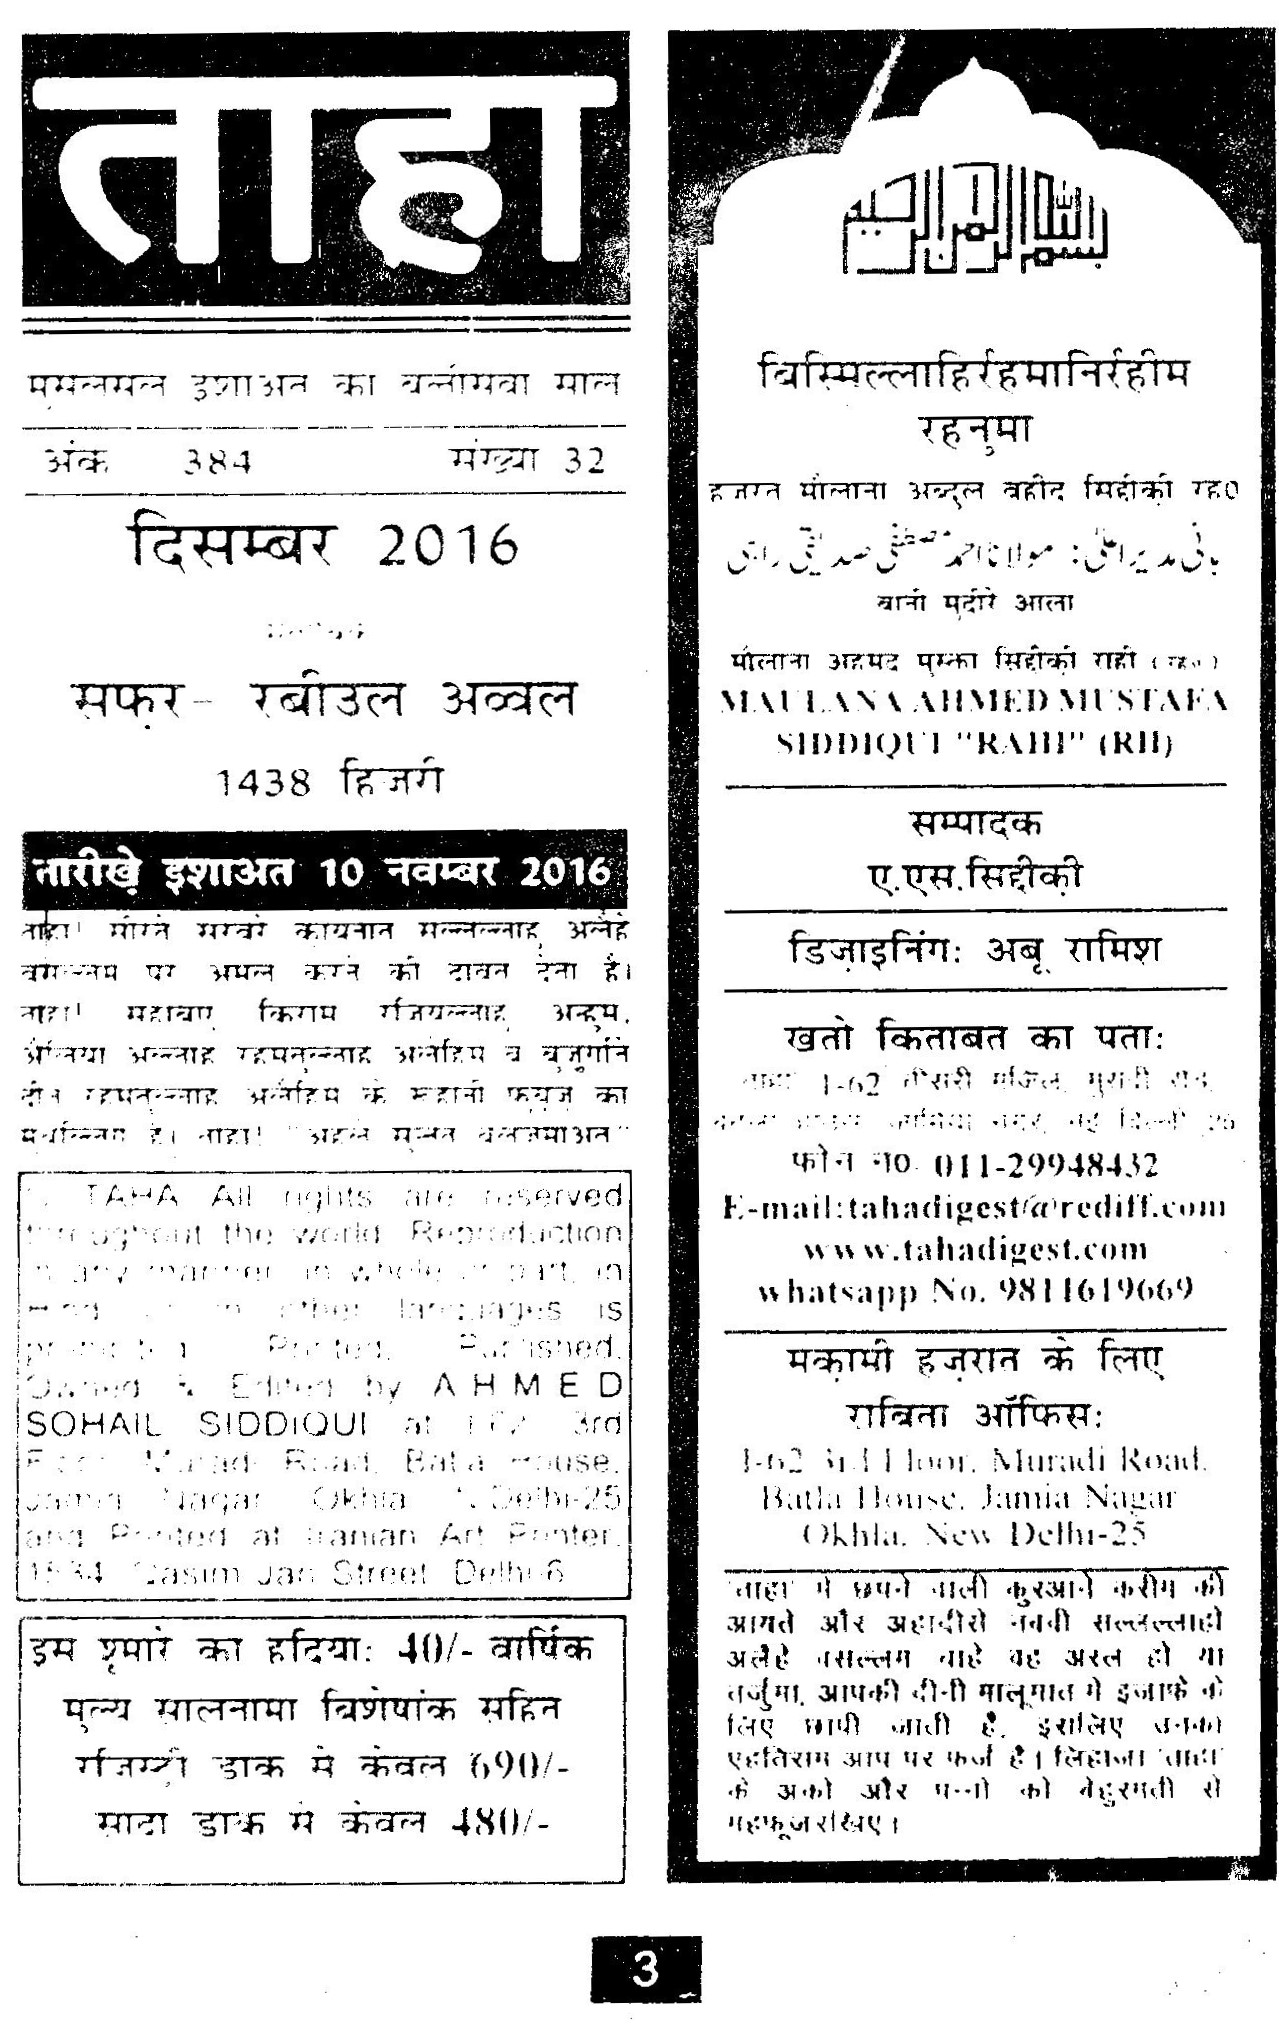 ताहा
मुसलसल इशाअत का बत्तीसवा साल
अंक 384 संख्या 32
दिसम्बर 2016
सफ़र- रबीउल अव्वल
1438 हिजरी
तारीखे़ इशाअत 10 नवम्बर 2016
ताहा! सीरते सरवरे कायनात सल्लल्लाहु अलैहे
वसल्लम पर अमल करने की दावत देता है।
ताहा! सहाबए किराम रजियल्लाहु अन्हुम,
औलिया अल्लाह रहमतुल्लाह अलैहिम व बुजुर्गाने
दीन रहमतुल्लाह अलैहिम के रूहानी फयूज़ का
मुबल्लिग है। ताहा! "अहले सुन्नत वलजमाअत"
© TAHA All rights are reserved
throughout the world. Reproduction
in any manner, in whole or part, in
other languages is
Printed, Published,
Owned & Edited by AHMED
SOHAIL SIDDIQUI at I-62, 3rd
Floor, Muradi Road, Batla House,
Jamia Nagar Okhla N.Delhi-25
and Printed at Iranian Art Printer,
1534, Qasim Jan Street, Delhi-6
इस शुमारे का हदिया: 40/- वार्षिक
मूल्य सालनामा विशेषांक सहित
रजिस्ट्री डाक से केवल 690/-
सादा डाक से केवल 480/-
بسم الله الرحمن الرحيم
बिस्मिल्लाहिर्रहमानिर्रहीम
रहनुमा
हजरत मौलाना अब्दुल वहीद सिद्दीकी़ रह0
بانی مدیر اعلیٰ: مولانا احمد مصطفیٰ صدیقی راہی
बानी मुदीरे आला
मौलाना अहमद मुस्तफा सिद्दीकी़ राही (रह0)
MAULANA AHMED MUSTAFA
SIDDIQUI "RAHI" (RH)
सम्पादक
ए.एस.सिद्दीकी़
डिज़ाइनिंग: अबू रामिश
खतो किताबत का पता:
ताहा I-62 तीसरी मंजिल, मुरादी रोड,
बटला हाउस, जामिया नगर, नई दिल्ली 25
फोन न0. 011-29948432
E-mail:tahadigest@rediff.com
www.tahadigest.com
whatsapp No. 9811619669
मका़मी हज़रात के लिए
राबिता ऑफिस:
I-62 3rd Floor, Muradi Road,
Batla House, Jamia Nagar
Okhla, New Delhi-25
'ताहा' में छपने वाली कुरआने करीम की
आयतें और अहादीसे नबवी सल्लल्लाहो
अलैहे वसल्लम चाहे वह असल हो या
तर्जुमा, आपकी दीनी मालूमात में इजाफे के
लिए छापी जाती है, इसलिए उनका
एहतिराम आप पर फर्ज है। लिहाजा 'ताहा'
के अंको और पन्नो को बेहुरमती से
महफूज रखिए।
3